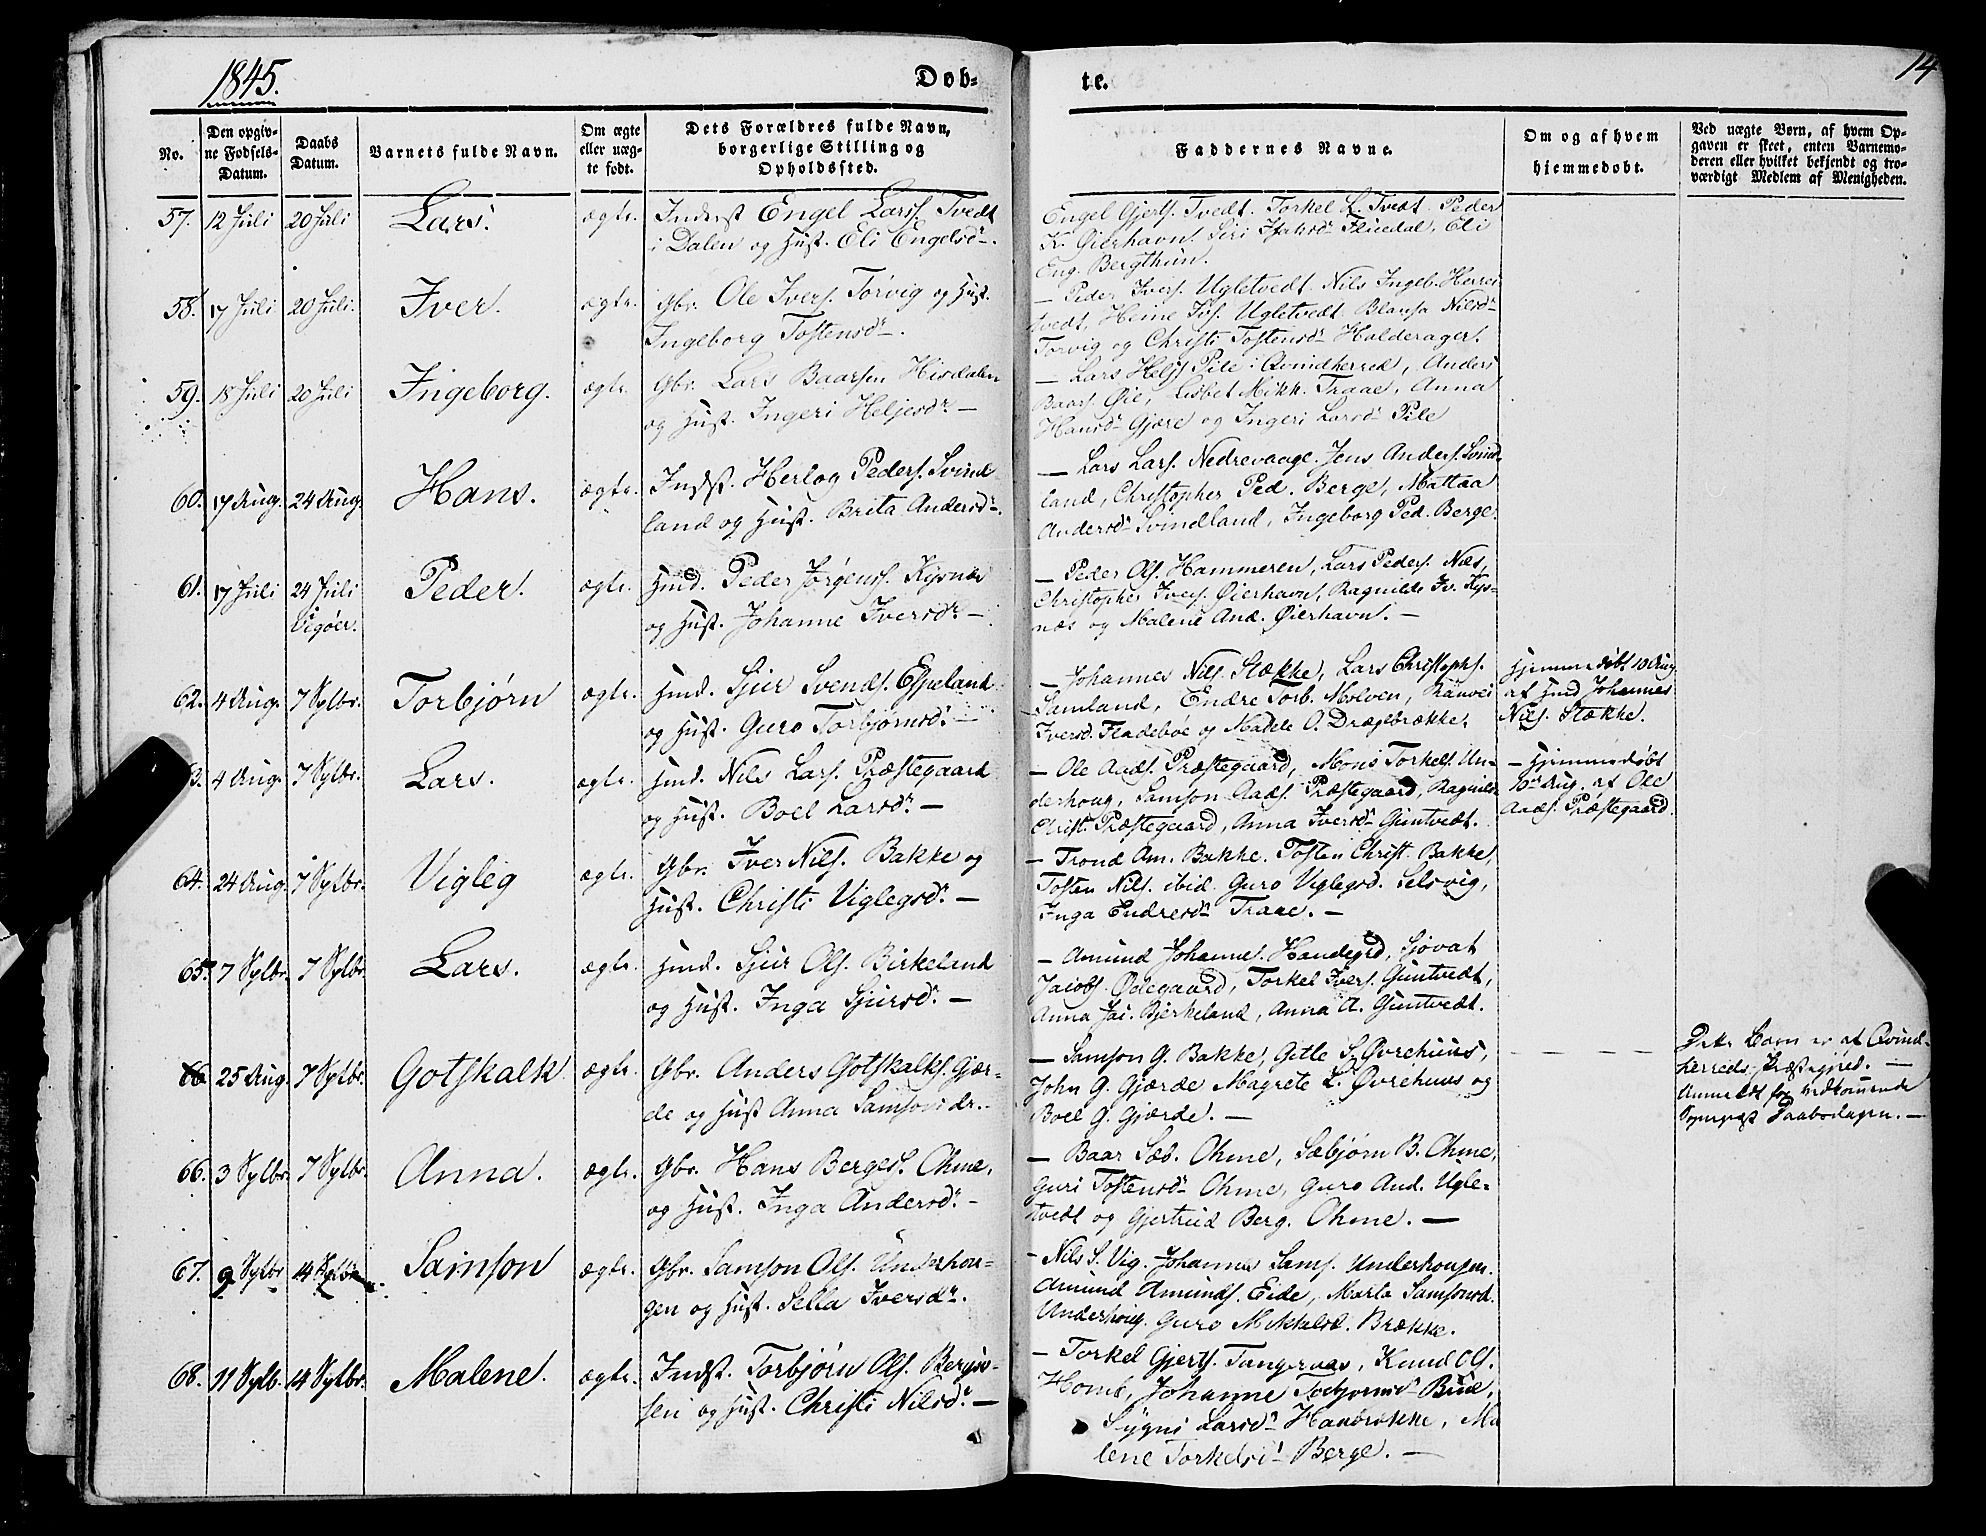 1845.
Dob-
te.
14
No.
Den opgiv-
ne Fødsels-
Datum.
Daabs
Datum.
Barnets fulde Navn.
Om ægte
eller uæg-
te født.
Dets Forældres fulde Navn,
borgerlige Stilling og
Opholdssted.
Faddernes Navne.
Om og af hvem
hjemmedøbt.
Ved uægte Børn, af hvem Op-
gaven er skeet, enten Barnemo-
deren eller hvilket bekjendt og tro-
værdigt Medlem af Menigheden.
57. 12 Juli 20 Juli Lars. ægte. Inderst Engel Larss. Tvedt
i Dalen og Hust. Eli Engelsdr.
Engel Gjerts. Tvedt. Torkel L. Tvedt. Peder
K. Øierhavn. Siri
Eng. Bergthun.
58. 17 Juli 20 Juli. Iver. ægte. Gbr. Ole Ivers. Torvig og Hust.
Ingeborg Tostensdr.
— Peder Ivers. Ugletvedt. Nils Ingeb. Herrei-
tvedt, Heine Ivs. Ugletvedt. Nilsdr
Torvig og Christi Tostensdr Halderager.
59. 18 Juli 20 Juli Ingeborg. ægte. Gbr. Lars Baarsen Hisdalen
og Hust. Ingeri Heljesdr. —
— Lars Heljs. Pile i Qvindherred, Anders
Baars. Øie, Lisbet Mikk. Traae, Anna
Hansdr Gjære og Ingeri Larsdr Pile
60. 17 Aug. 24 Aug. Hans. ægte. Indst. Herlog Peders. Svind
land og Hust. Brita Andersdr.
— Lars Lars. Nedrevaage. Jens Anders. Svind-
land, Christopher Ped. Berge, Mattaa
Andersdr Svindland, Ingeborg Ped. Berge.
61. 17 Juli 24 Juli Peder. ægte. Hmd. Peder Jørgens. Kysnæs
Vigøer.
og Hust. Johanne Iversdr. —
— Peder Ols. Hammeren, Lars Peders. Næs,
Christopher Ivers. Øierhavn, Ragnilde Iv. Kys-
næs og Malene And. Øierhavn. —
62. 4 Aug. 7 Sptbr. Torbjørn ægte. Hmd. Sjur Svends. Espeland
og Hust. Guro Torbjørnsdr. —
— Johannes Nils. Stække, Lars Christophs.
Samland, Endre Torb. Molven, Ranvei
Iversd. Fladebøe og Makele O. Drægebrække.
Hjemmedøbt 10 Aug
af Hmd Johannes
Nils. Stække.
3. 4 Aug. 7 Sptbr. Lars. ægte. Hmd. Nils Lars. Præstegaard
og Hust. Boel Larsdr. —
— Ole Aads. Præstegaard, Mons Torkels. Un-
derhoug, Samson Aads. Præstegaard, Ragnilde
Christ. Præstegaard, Anna Iversdr Guntvedt.
— Hjemmedøbt
10de Aug. af Ole
Aads. Præstegaard.
64. 24 Aug. 7 Sptbr. Vigleg ægte. Gbr. Iver Nils. Bakke og
Hust. Christi Viglegsdr. —
— Trond Am. Bakke. Tosten Christ. Bakke,
Tosten Nils. ibid. Guro Viglegsd. Selsvig,
Inga Endresdr Traae. —
65. 7 Sptbr. 7 Sptbr Lars. ægte. Hmd. Sjur Ols. Birkeland
og Hust. Inga Sjursdr. —
— Amund Johannes. Handegrd, Sjovat
Jacobs. Ødegaard, Torkel Ivers. Guntvedt,
Anna Jac. Bjerkeland, Anna A. Guntvedt.
66. 25 Aug. 7 Sptbr. Gotskalk ægte. Gbr. Anders Gotskalks. Gjær-
de og Hust Anna Samsonsdr.
— Samson G. Bakke, Gitle S. Øvrehuus,
John G. Gjærde Magrete L. Øvrehuus og
Boel G. Gjærde. —
— — —
Dette Barn er af Qvind-
herreds Præstegjeld. —
Anmeldt for vedkommende
Sognepræst Daabsdagen. —
66. 3 Sptbr. 7 Sptbr. Anna. ægte. Gbr. Hans Berges. Ohme,
og Hust. Inga Andersdr. —
— Baar Sæb. Ohme, Sæbjørn B. Ohme,
Guri Tostensdr Ohme, Guro And. Ugle-
tvedt og Gjertrud Berg. Ohme. —
67. 9 Sptbr 14 Sptbr Samson ægte. Gbr. Samson Ols. Underhou-
gen og Hust. Sella Iversdr.
— Nils S. Vig. Johannes Sams. Underhougen.
Amund Amunds. Eide, Marta Samsonsd.
Underhoug. Guro Mikkelsd. Brække.
68. 11 Sptb. 14 Sptbr. Malene. ægte. Indst. Torbjørn Ols. Bergs-
og Hust. Christi Nilsdr. —
— Torkel Gjerts. Tangeraas, Knud Ols.
Johanne Torbjørnsdr
Sygni Larsdr Handrække, Ma
lene Torkelsdr Berge. —